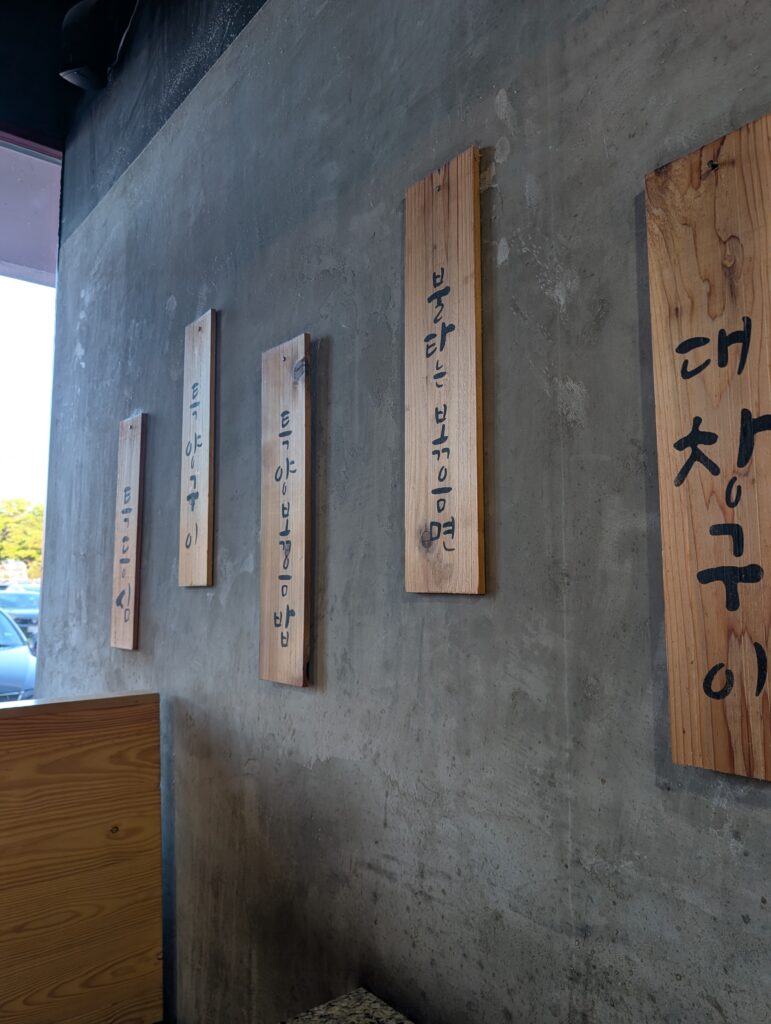 특등심
특양구이
특양볶음밥
불타는볶음면
대창구이